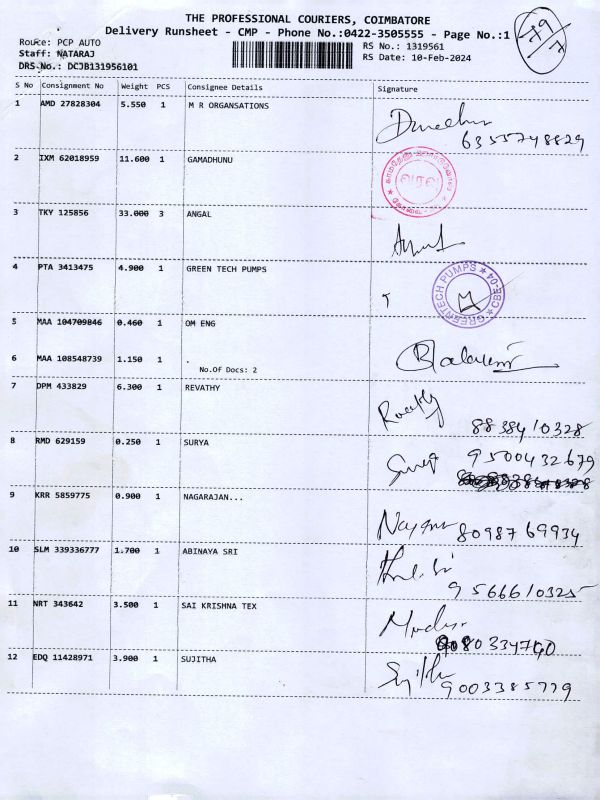 THE PROFESSIONAL COURIERS, COIMBATORE
Delivery Runsheet - CMP - Phone No.:0422-3505555 - Page No.:1
79/7
Rouce: PCP AUTO
RS No.: 1319561
Staff: NATARAJ
RS Date: 10-Feb-2024
DRS No.: DCJB131956101
S No Consignment No Weight PCS Consignee Details Signature
1 AMD 27828304 5.550 1 M R ORGANSATIONS
6355748829
2 IXM 62018959 11.600 1 GAMADHUNU
3 TKY 125856 33.000 3 ANGAL
4 PTA 3413475 4.900 1 GREEN TECH PUMPS
GREENTECH PUMPS ★ CBE-04 ★
5 MAA 104709846 0.460 1 OM ENG
6 MAA 108548739 1.150 1 .
No.Of Docs: 2
7 DPM 433829 6.300 1 REVATHY
8838410328
8 RMD 629159 0.250 1 SURYA
9500432679
9 KRR 5859775 0.900 1 NAGARAJAN...
8098769934
10 SLM 339336777 1.700 1 ABINAYA SRI
9566610325
11 NRT 343642 3.500 1 SAI KRISHNA TEX
12 EDQ 11428971 3.900 1 SUJITHA
9003385779